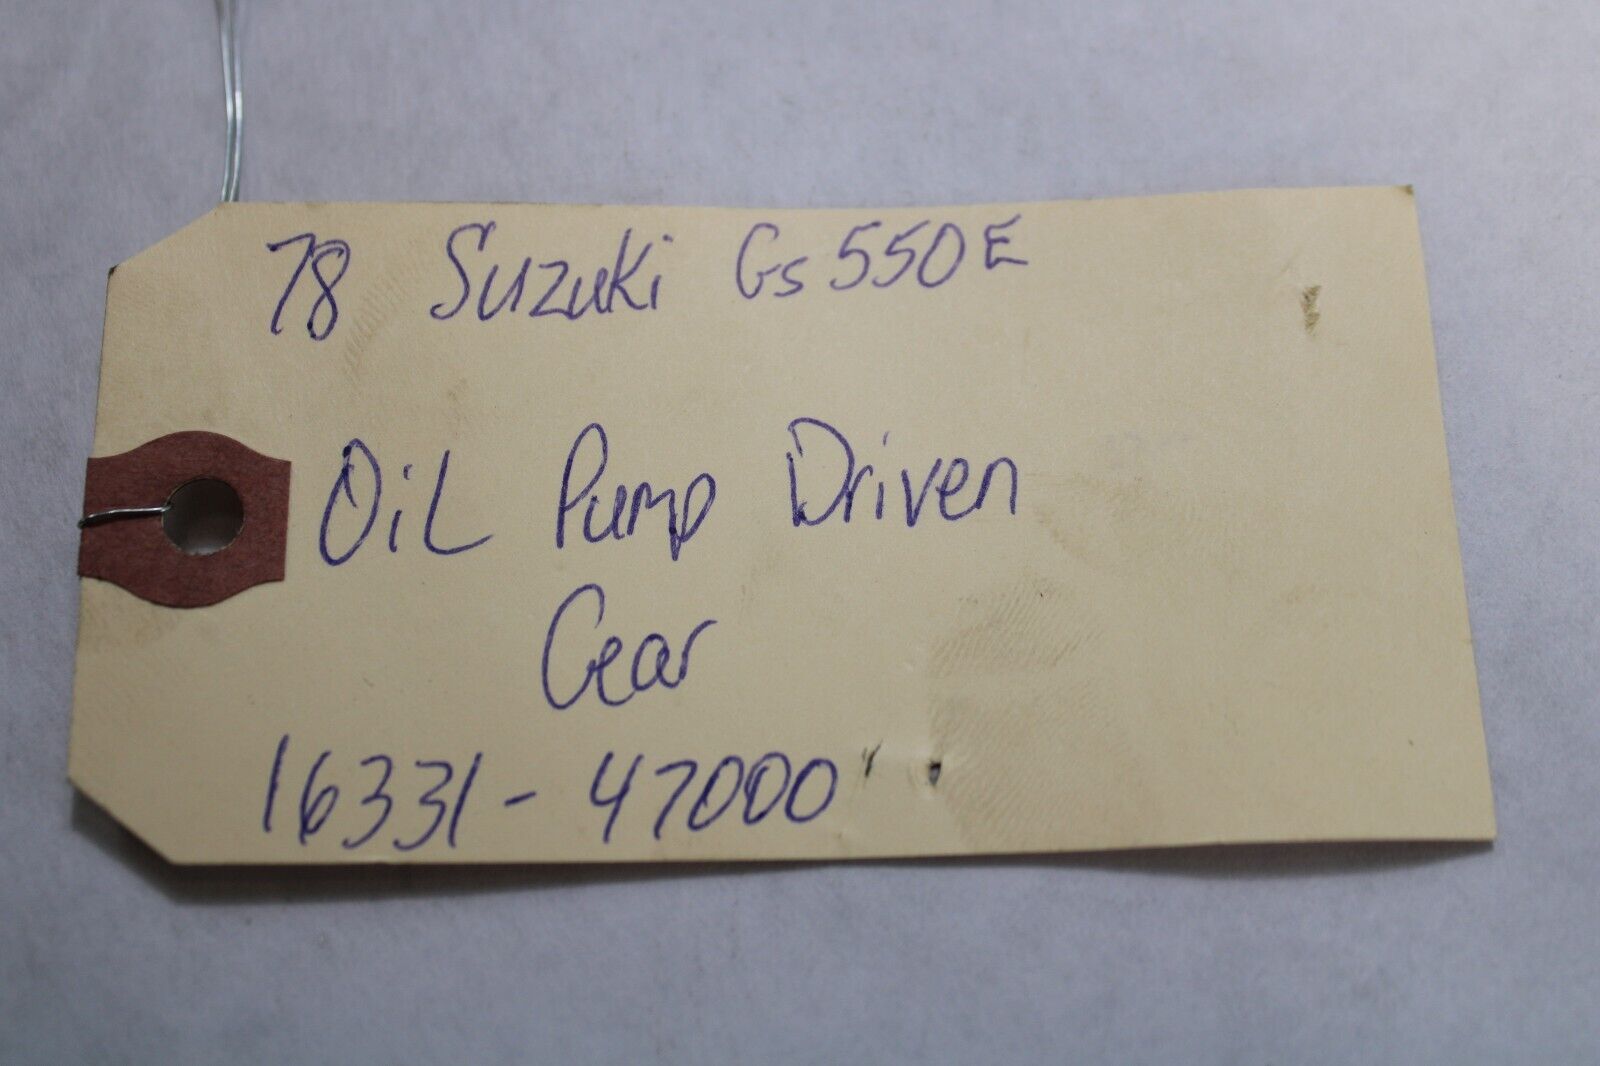 78 Suzuki Gs550E
OiL Pump Driven
Gear
16331-47000